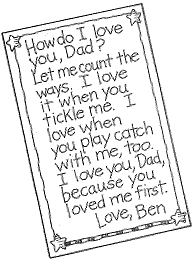 How do I love
you, Dad?
Let me count the
ways. I love
it when you
tickle me. I
love when
you play catch
with me, too.
I love you, Dad,
because you
loved me first.
Love, Ben